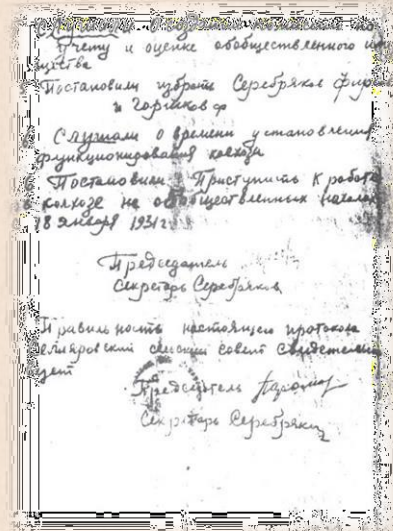 учету и оценке обобществленного
щества
Постановили избрать Серебряков
и Горшков ф
Слушали о времени установления
функционирования колхоза
Постановили Приступить к работе
колхозе на обобществленных началах
8 января 1931г
Председатель
Секретарь Серебряков
Правильность настоящего протокола
сельский совет
Председатель
Секретарь Серебряков